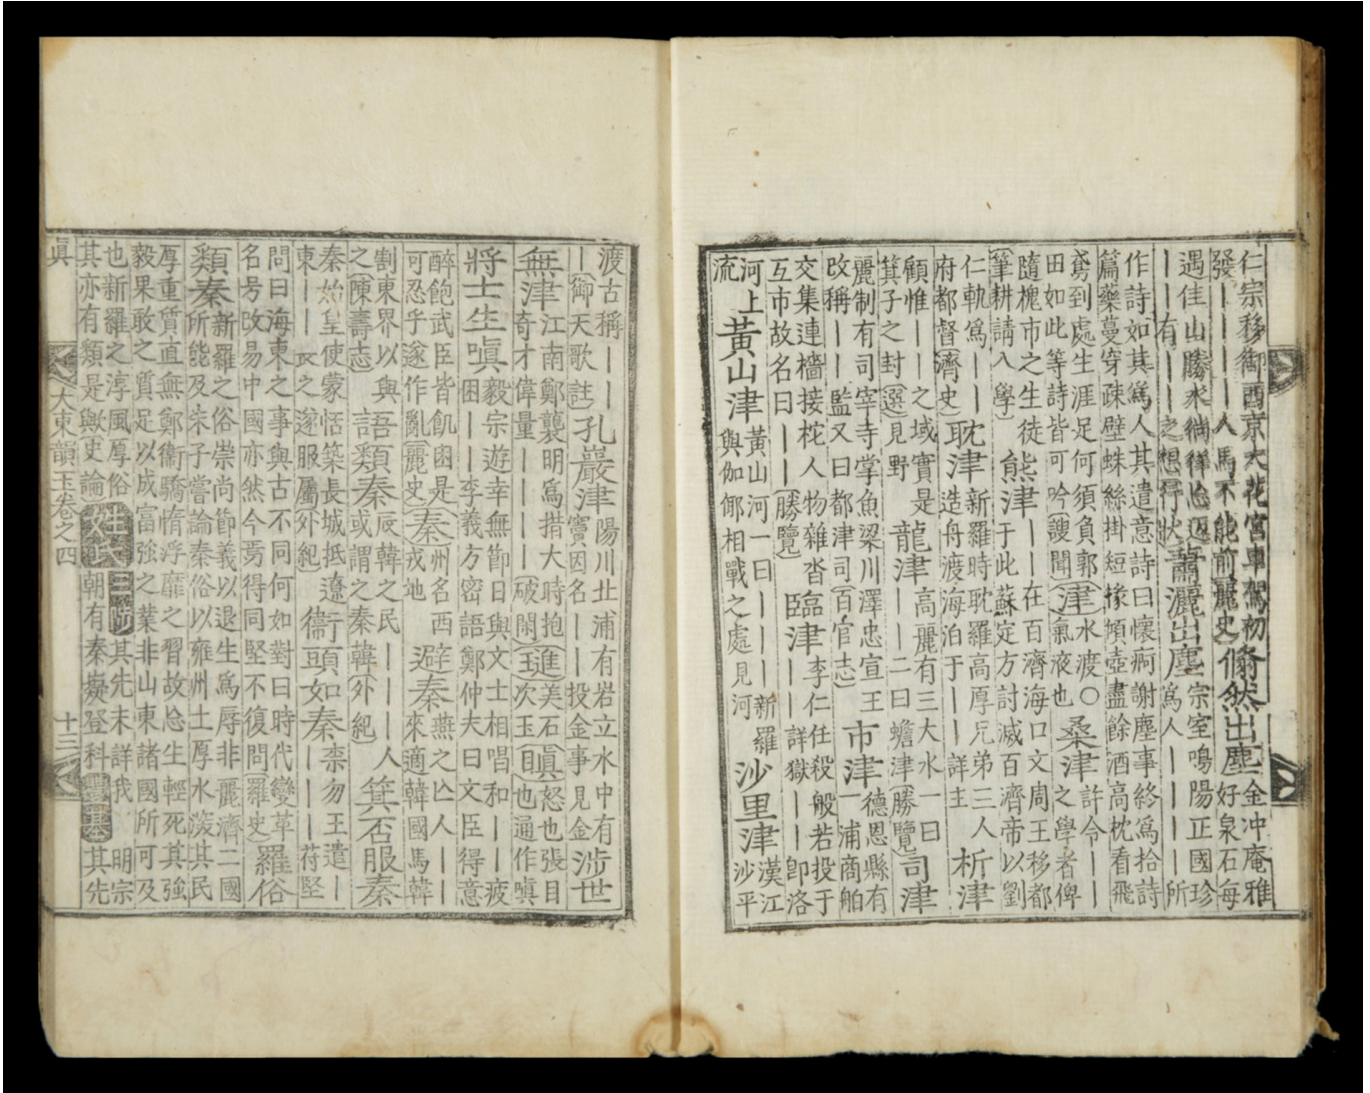 仁宗移御西京大花宮車駕初
發｜｜｜｜人馬不能前麗史
翛然出塵
金冲庵雅
好泉石每
遇佳山勝水徜徉忘返
｜｜有｜｜｜之想行狀
蕭灑出塵
宗室鳴陽正國珍
爲人｜｜｜｜所
作詩如其爲人其遣意詩曰懷痾謝塵事終爲拾詩
篇藥蔓穿疎壁蛛絲掛短椽傾壺盡餘酒高枕看飛
鳶到處生涯足何須負郭
田如此等詩皆可吟謏聞
津
水渡○
氣液也
桑津
許今｜｜
之學者俾
隨槐市之生徒
筆耕請入學
熊津
｜｜在百濟海口文周王移都
于此蘇定方討滅百濟帝以劉
仁軌爲｜｜
府都督濟史
耽津
新羅時耽羅高厚兄弟三人
造舟渡海泊于｜｜詳主
析津
顧惟｜｜之域實是
箕子之封選見野
龍津
高麗有三大水一曰
｜｜二曰蟾津勝覽
司津
麗制有司宰寺掌魚梁川澤忠宣王
改稱｜｜監又曰都津司百官志
市津
德恩縣有
一浦商舶
交集連檣接柁人物雜沓
互市故名曰｜｜勝覽
臨津
李仁任殺般若投于
｜｜詳獄｜｜卽洛
河上
流
黃山津
黃山河一曰｜｜｜｜新羅
與伽倻相戰之處見河
沙里津
漢江
沙平
渡古稱｜｜
｜御天歌註
孔巖津
陽川北浦有岩立水中有
竇因名｜｜｜投金事見金
涉世
無津
江南鄭襲明爲措大時抱
奇才偉量｜｜｜｜破閑
璡
美石
次玉
瞋
怒也張目
也通作嗔
將士生嗔
毅宗遊幸無節日與文士相唱和｜｜疲
困｜｜李義方密語鄭仲夫曰文臣得意
醉飽武臣皆飢困是
可忍乎遂作亂麗史
秦
州名西
戎地
避秦
燕之亡人｜｜
來適韓國馬韓
割東界以與
之陳壽志
語類秦
辰韓之民｜｜｜人
或謂之秦韓外紀
箕否服秦
秦始皇使蒙恬築長城抵遼
東｜｜｜畏之遂服屬外紀
衛頭如秦
柰勿王遣｜
｜｜｜苻堅
問曰海東之事與古不同何如對曰時代變革
名号改易中國亦然今焉得同堅不復問羅史
羅俗
類秦
新羅之俗崇尚節義以退生爲辱非麗濟二國
所能及朱子嘗論秦俗以雍州土厚水深其民
厚重質直無鄭衛驕惰浮靡之習故忘生輕死其強
毅果敢之質足以成富強之業非山東諸國所可及
也新羅之淳風厚俗
其亦有類是歟史論
姓氏
三陟
其先未詳我
朝有秦嶷登科
豐基
明宗
其先
眞
大東韻玉卷之四
十三